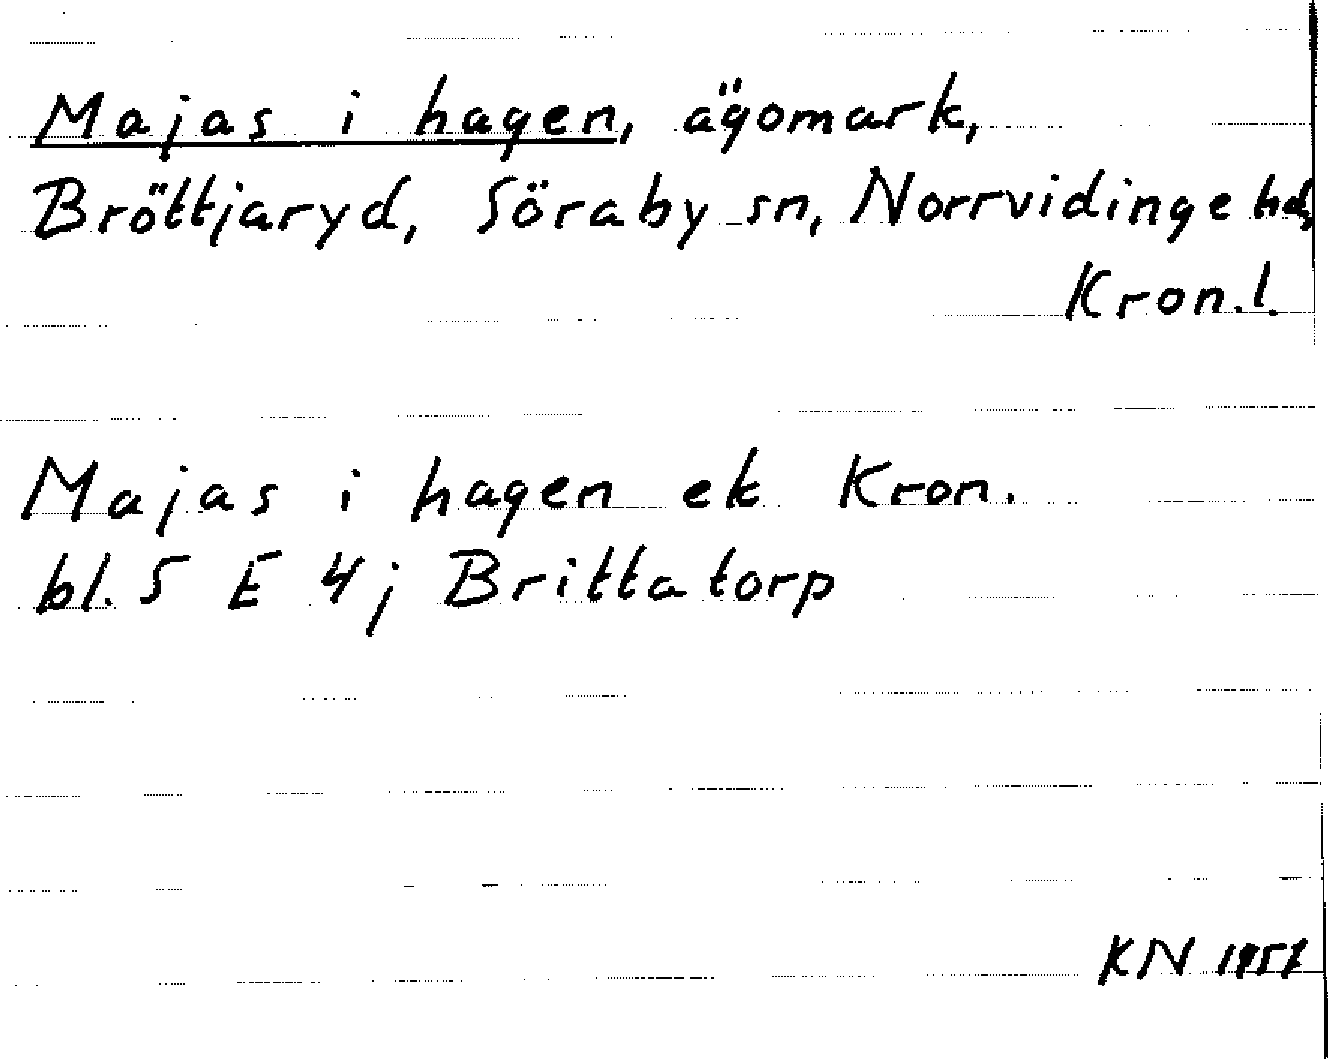 Majas i hagen, ägomark,
Bröttjaryd, Söraby sn, Norrvidinge hd,
Kron.l.
Majas i hagen ek Kron.
bl. 5 E 4j Brittatorp
KN 1957